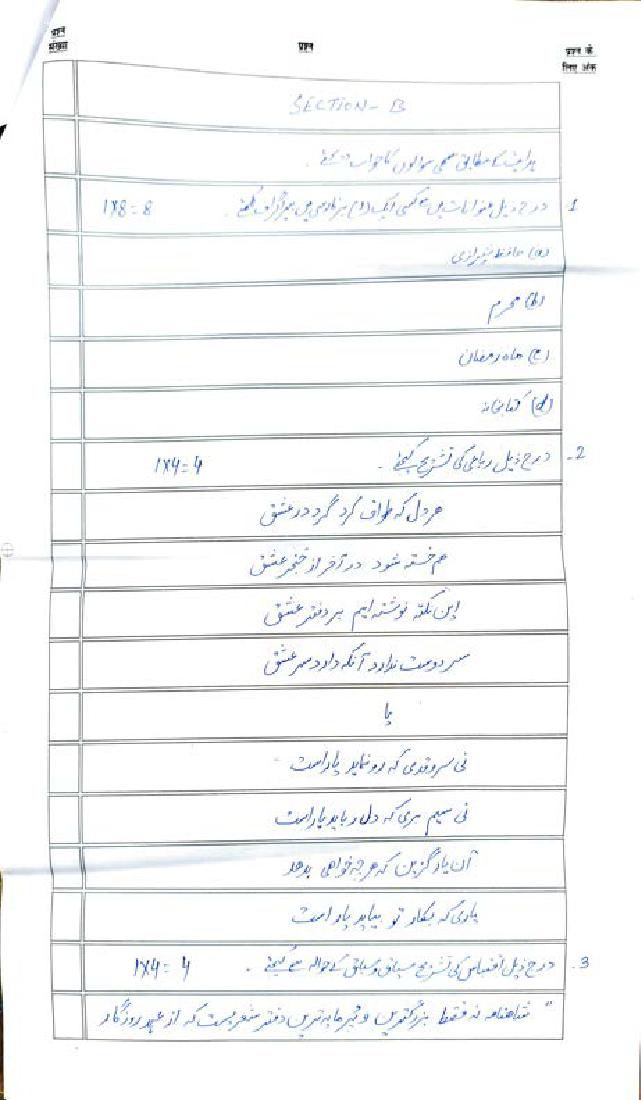 प्रश्न संख्या
प्रश्न
प्रश्न के लिए अंक
SECTION - B
ہدایت کے مطابق سبھی سوالوں کا جواب دیجئے۔
1. درج ذیل عنوانات میں سے کسی ایک (1) پر فارسی میں پیراگراف لکھئے۔ 1X8=8
(a) حافظ شیرازی
(b) محرم
(c) ماہ رمضان
(d) کتابخانہ
2. درج ذیل رباعی کی تشریح کیجئے۔ 1X4=4
ہر دل کہ طواف کرد گرد در عشق
ہم خستہ شود در آخر از خنجر عشق
این نکتہ نوشتہ ایم بر دفتر عشق
سر دوست ندارد آنکہ دارد سر عشق
یا
نی سرو قدی کہ رو نماید یار است
نی سیم بری کہ دل رباید یار است
آن یار گزین کہ ہر چہ خواہی بدہد
یاری کہ بکار تو بیاید یار است
3. درج ذیل اقتباس کی تشریح سیاق و سباق کے حوالہ سے کیجئے۔ 1X4=4
"شاہنامہ نہ فقط بزرگترین و پرمایہ ترین دفتر شعر است کہ از عہد روزگار